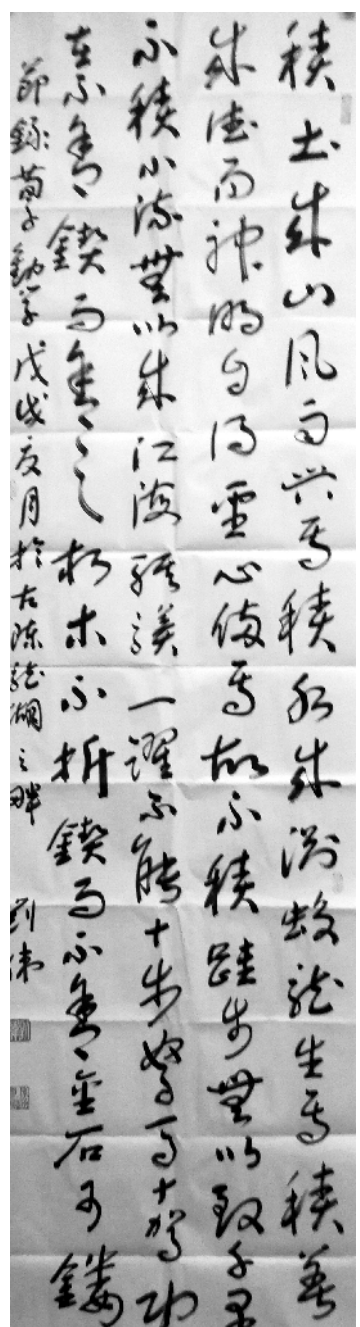 積土成山風雨興焉積水成渊蛟龍生焉積善
成德而神明自得聖心備焉故不積蹞步無以致千里
不積小流無以成江海騏驥一躍不能十步駑馬十駕功
在不舍鍥而舍之朽木不折鍥而不舍金石可鏤
節錄荀子勸學戊戌夏月於古陳龍湖之畔 劉偉